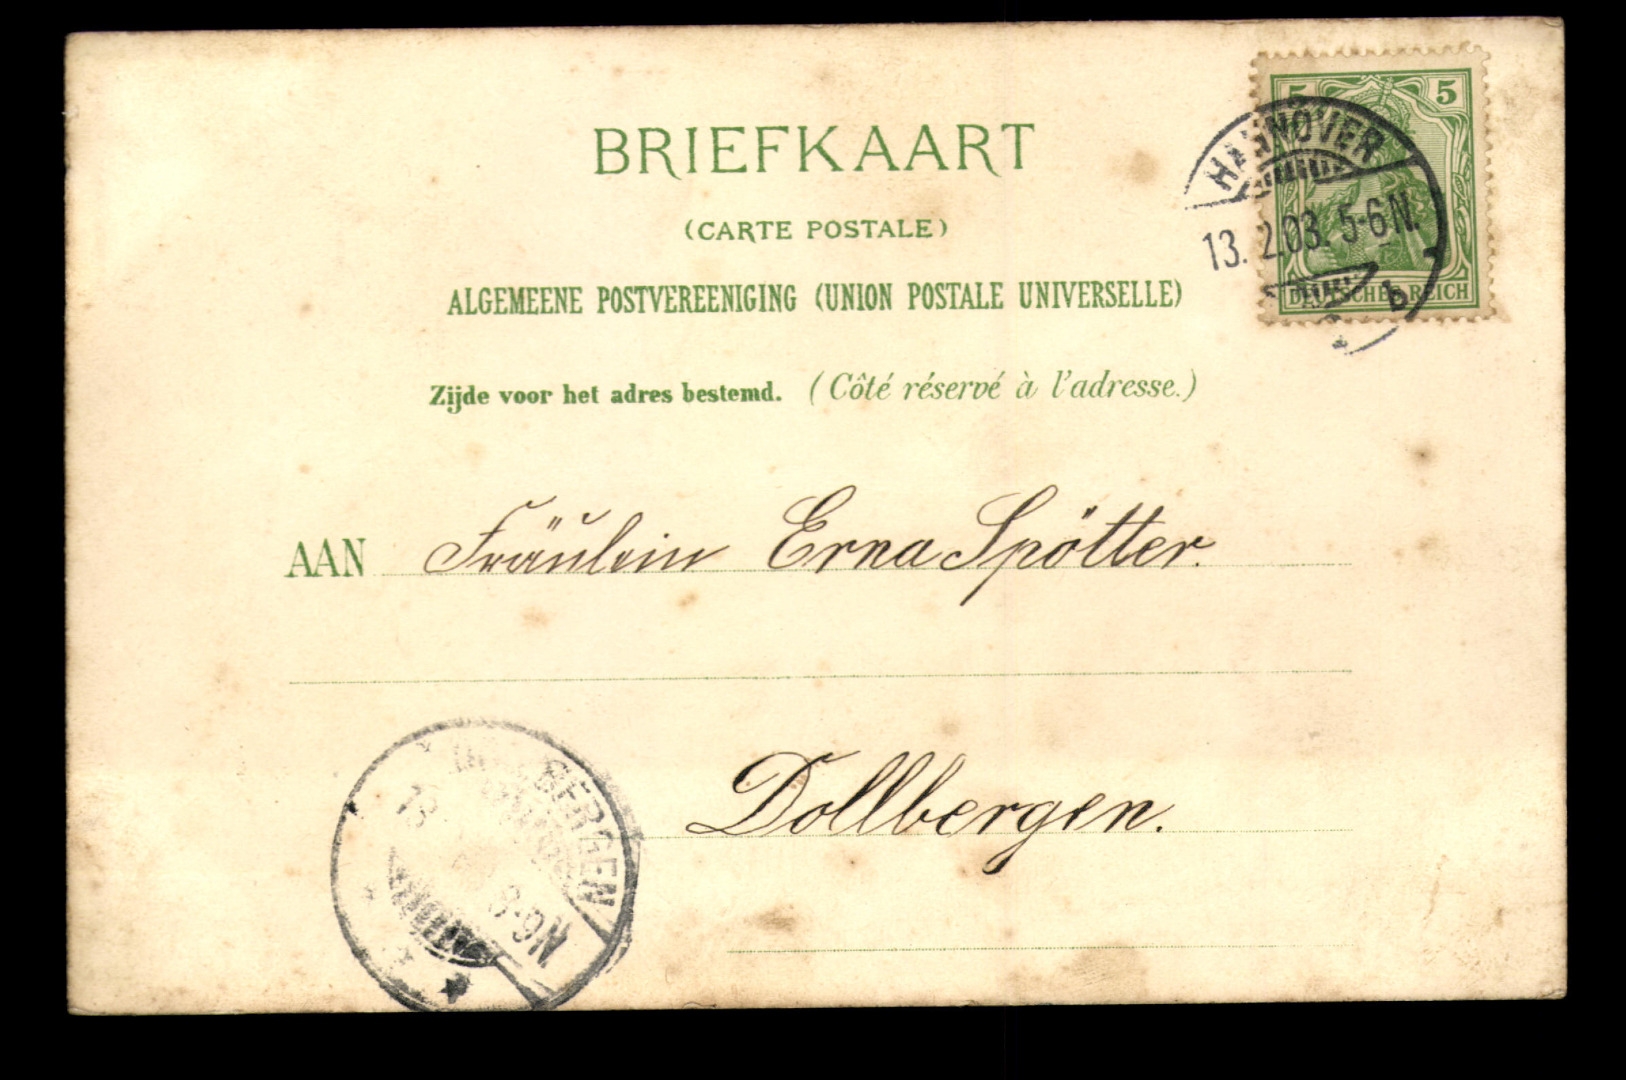 BRIEFKAART
(CARTE POSTALE)
ALGEMEENE POSTVEREENIGING (UNION POSTALE UNIVERSELLE)
Zijde voor het adres bestemd. (Côté réservé à l'adresse.)
5 5
DEUTSCHES REICH
HANNOVER
13. 2.03. 5-6N.
b
AAN Fräulein Erna Spötter.
Dollbergen.
DOLLBERGEN
13 8-9N